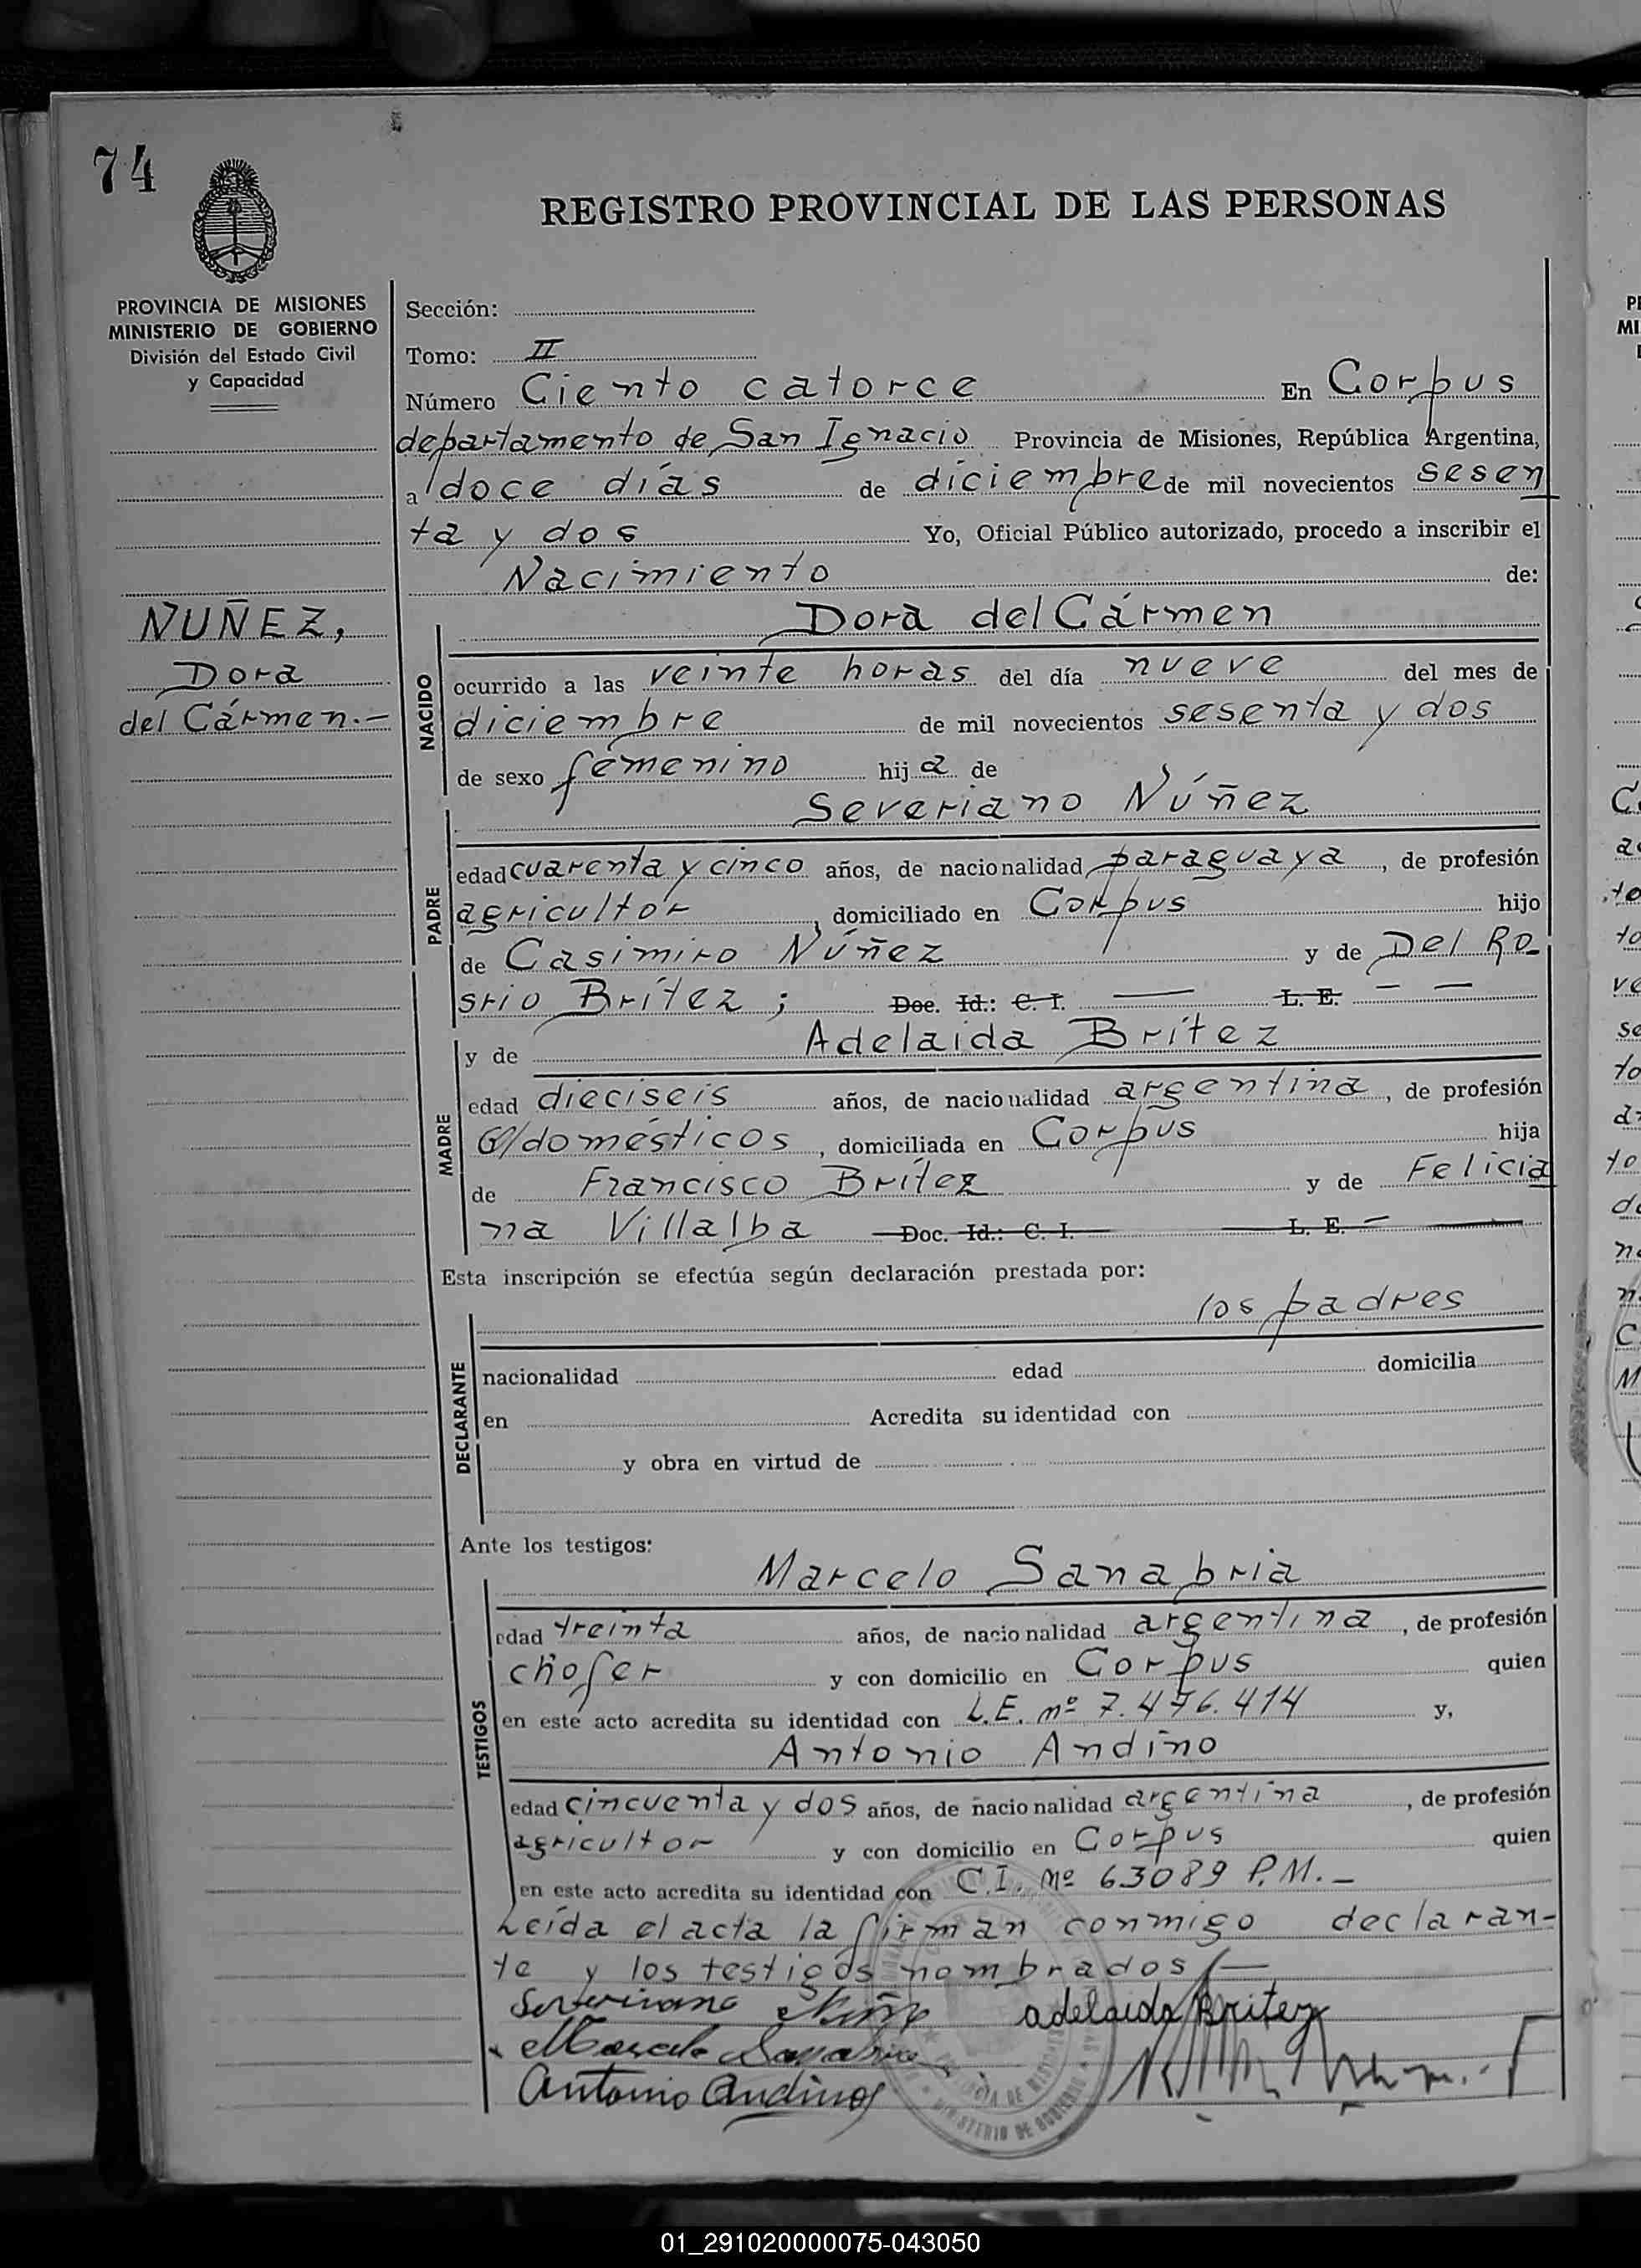 74
REGISTRO PROVINCIAL DE LAS PERSONAS
PROVINCIA DE MISIONES
MINISTERIO DE GOBIERNO
División del Estado Civil
y Capacidad
NUÑEZ,
Dora
del Cármen.-
Sección:
Tomo: II
Número Ciento catorce En Corpus
departamento de San Ignacio Provincia de Misiones, República Argentina,
a doce días de diciembre de mil novecientos sesen
ta y dos Yo, Oficial Público autorizado, procedo a inscribir el
Nacimiento de:
Dora del Cármen
NACIDO
ocurrido a las veinte horas del día nueve del mes de
diciembre de mil novecientos sesenta y dos
de sexo femenino hija de
Severiano Núñez
PADRE
edad cuarenta y cinco años, de nacionalidad paraguaya, de profesión
agricultor, domiciliado en Corpus hijo
de Casimiro Núñez y de Del Ro
srio Brítez; Doc. Id.: C. I. — L. E. — —
MADRE
y de Adelaida Brítez
edad dieciseis años, de nacionalidad argentina, de profesión
Q/domésticos, domiciliada en Corpus hija
de Francisco Brítez y de Felicia
na Villalba Doc. Id.: C. I. L. E. —
Esta inscripción se efectúa según declaración prestada por:
los padres
DECLARANTE
nacionalidad edad domicilia
en Acredita su identidad con
y obra en virtud de
Ante los testigos:
Marcelo Sanabria
TESTIGOS
edad treinta años, de nacionalidad argentina, de profesión
chofer y con domicilio en Corpus quien
en este acto acredita su identidad con L.E. nº 7.476.414 y,
Antonio Andino
edad cincuenta y dos años, de nacionalidad argentina, de profesión
agricultor y con domicilio en Corpus quien
en este acto acredita su identidad con C.I. Nº 63089 P.M.-
Leída el acta la firman conmigo declaran-
te y los testigos nombrados/—
Severiano Núñez Adelaida Britez
Marcelo Sanabria
Antonio Andino
MINISTERIO DE GOBIERNO
01_291020000075-043050